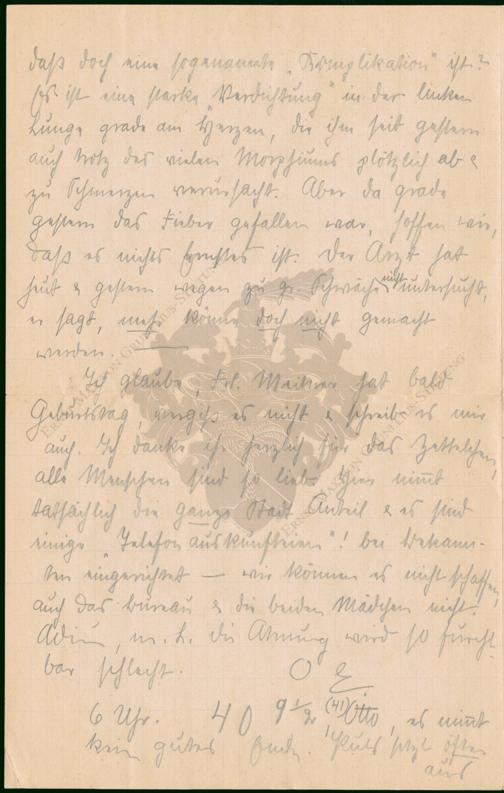 daß doch eine sogenannte „Komplikation" ist?
Es ist eine starke „Verdichtung" in der linken
Lunge grade am Herzen, die ihm seit gestern
auch trotz des vielen Morphiums plötzlich ab &
zu Schmerzen verursacht. Aber da grade
gestern das Fieber gefallen war, hoffen wir,
daß es nichts Ernstes ist. Der Arzt hat
heut & gestern wegen zu gr. Schwäche nicht untersucht,
er sagt, mehr könne doch nicht gemacht
werden. —
Ich glaube, Frl. Meitner hat bald
Geburtstag, vergiß es nicht & schreib es mir
auch. Ich danke ihr herzlich für das Zettelchen,
alle Menschen sind so lieb. Hier nimmt
tatsächlich die ganze Stadt Anteil & es sind
einige „Telefonauskunfteien"! bei Bekann-
ten eingerichtet — wir können es nicht schaffen,
auch das Bureau & die beiden Mädchen nicht.
Adieu, m. L. die Atmung wird so furcht-
bar schlecht.
6 Uhr. 40 9½ (41) Otto, es nimmt
kein gutes Ende. Puls setzt öfter
aus
ERNST AMTON GRUNELIUS-STIFTUNG